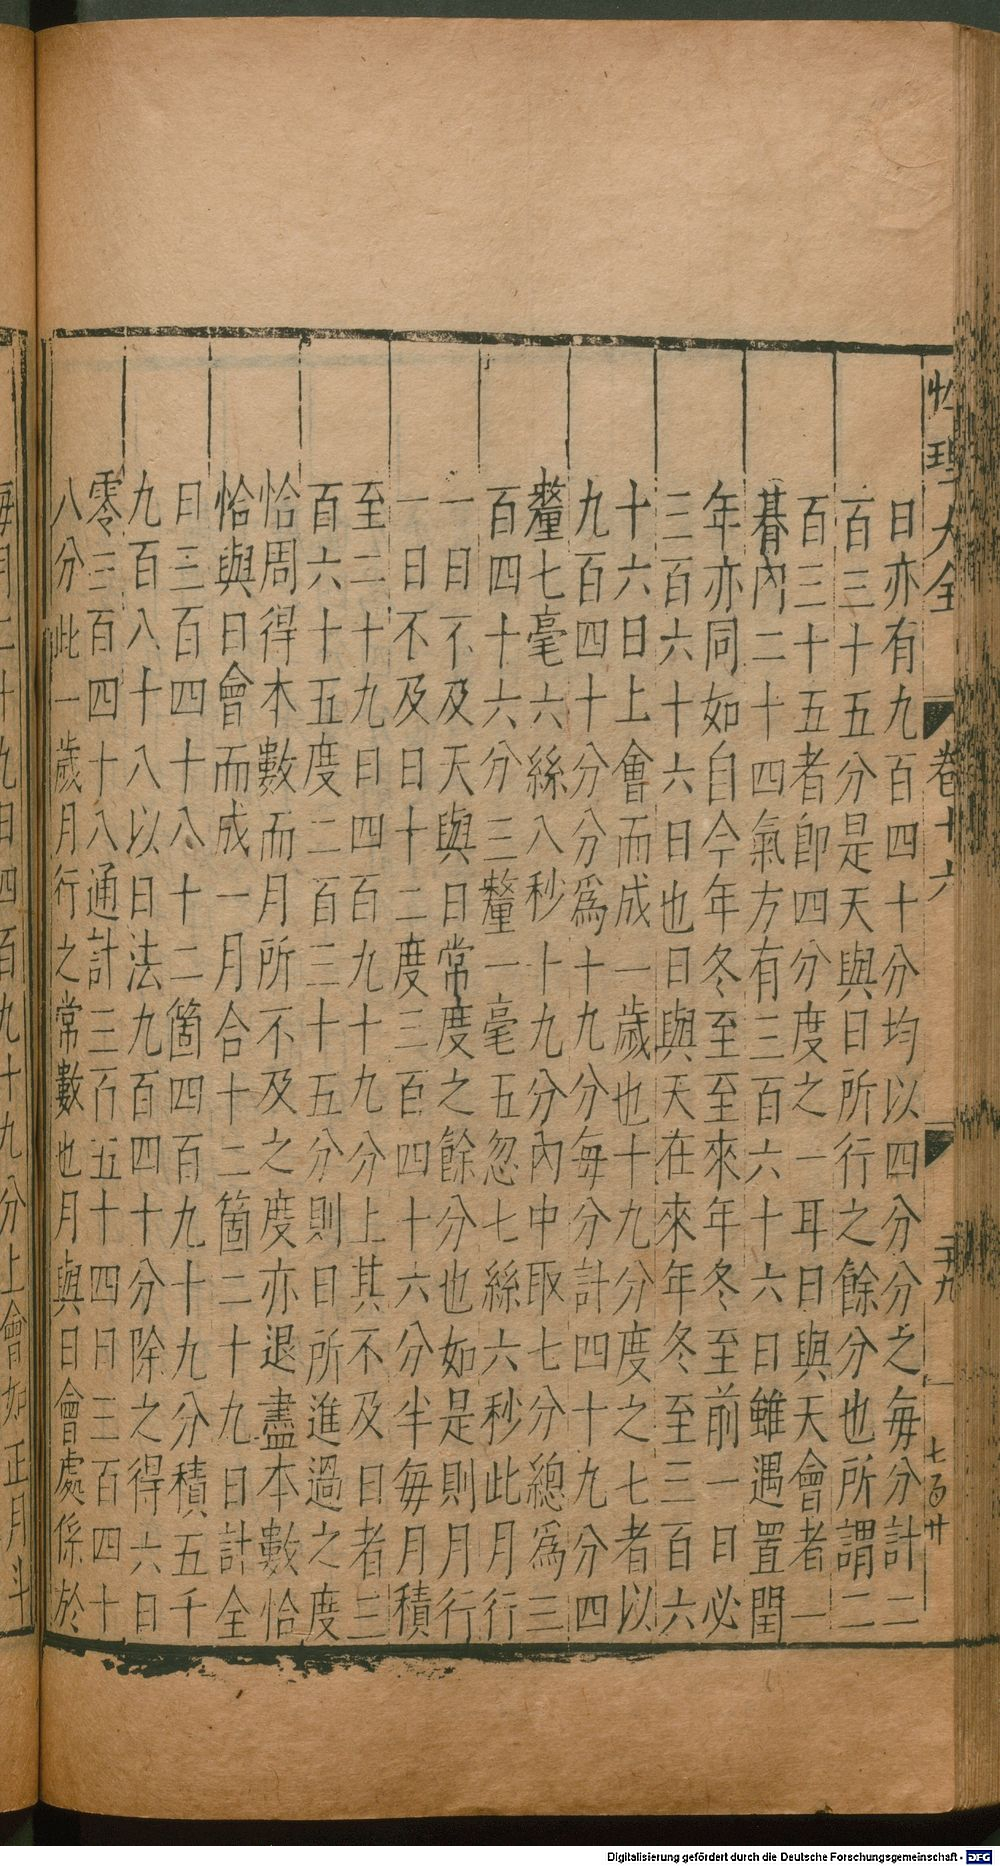 性理大全 卷十六 三十九 七百廿
日亦有九百四十分均以四分分之每分計二
百三十五分是天與日所行之餘分也所謂二
百三十五者卽四分度之一耳日與天會者一
朞內二十四氣方有三百六十六日雖遇置閏
年亦同如自今年冬至至來年冬至前一日必
三百六十六日也日與天在來年冬至三百六
十六日上會而成一歲也十九分度之七者以
九百四十分分爲十九分每分計四十九分四
釐七毫六絲八秒十九分內中取七分總爲三
百四十六分三釐一毫五忽七絲六秒此月行
一日不及天與日常度之餘分也如是則月行
一日不及日十二度三百四十六分半每月積
至二十九日四百九十九分上其不及日者三
百六十五度二百三十五分則日所進過之度
恰周得本數而月所不及之度亦退盡本數恰
恰與日會而成一月合十二箇二十九日計全
日三百四十八十二箇四百九十九分積五千
九百八十八以日法九百四十分除之得六日
零三百四十八通計三百五十四日三百四十
八分此一歲月行之常數也月與日會處係於
每月二十九日四百九十九分上會如正月斗
Digitalisierung gefördert durch die Deutsche Forschungsgemeinschaft - DFG